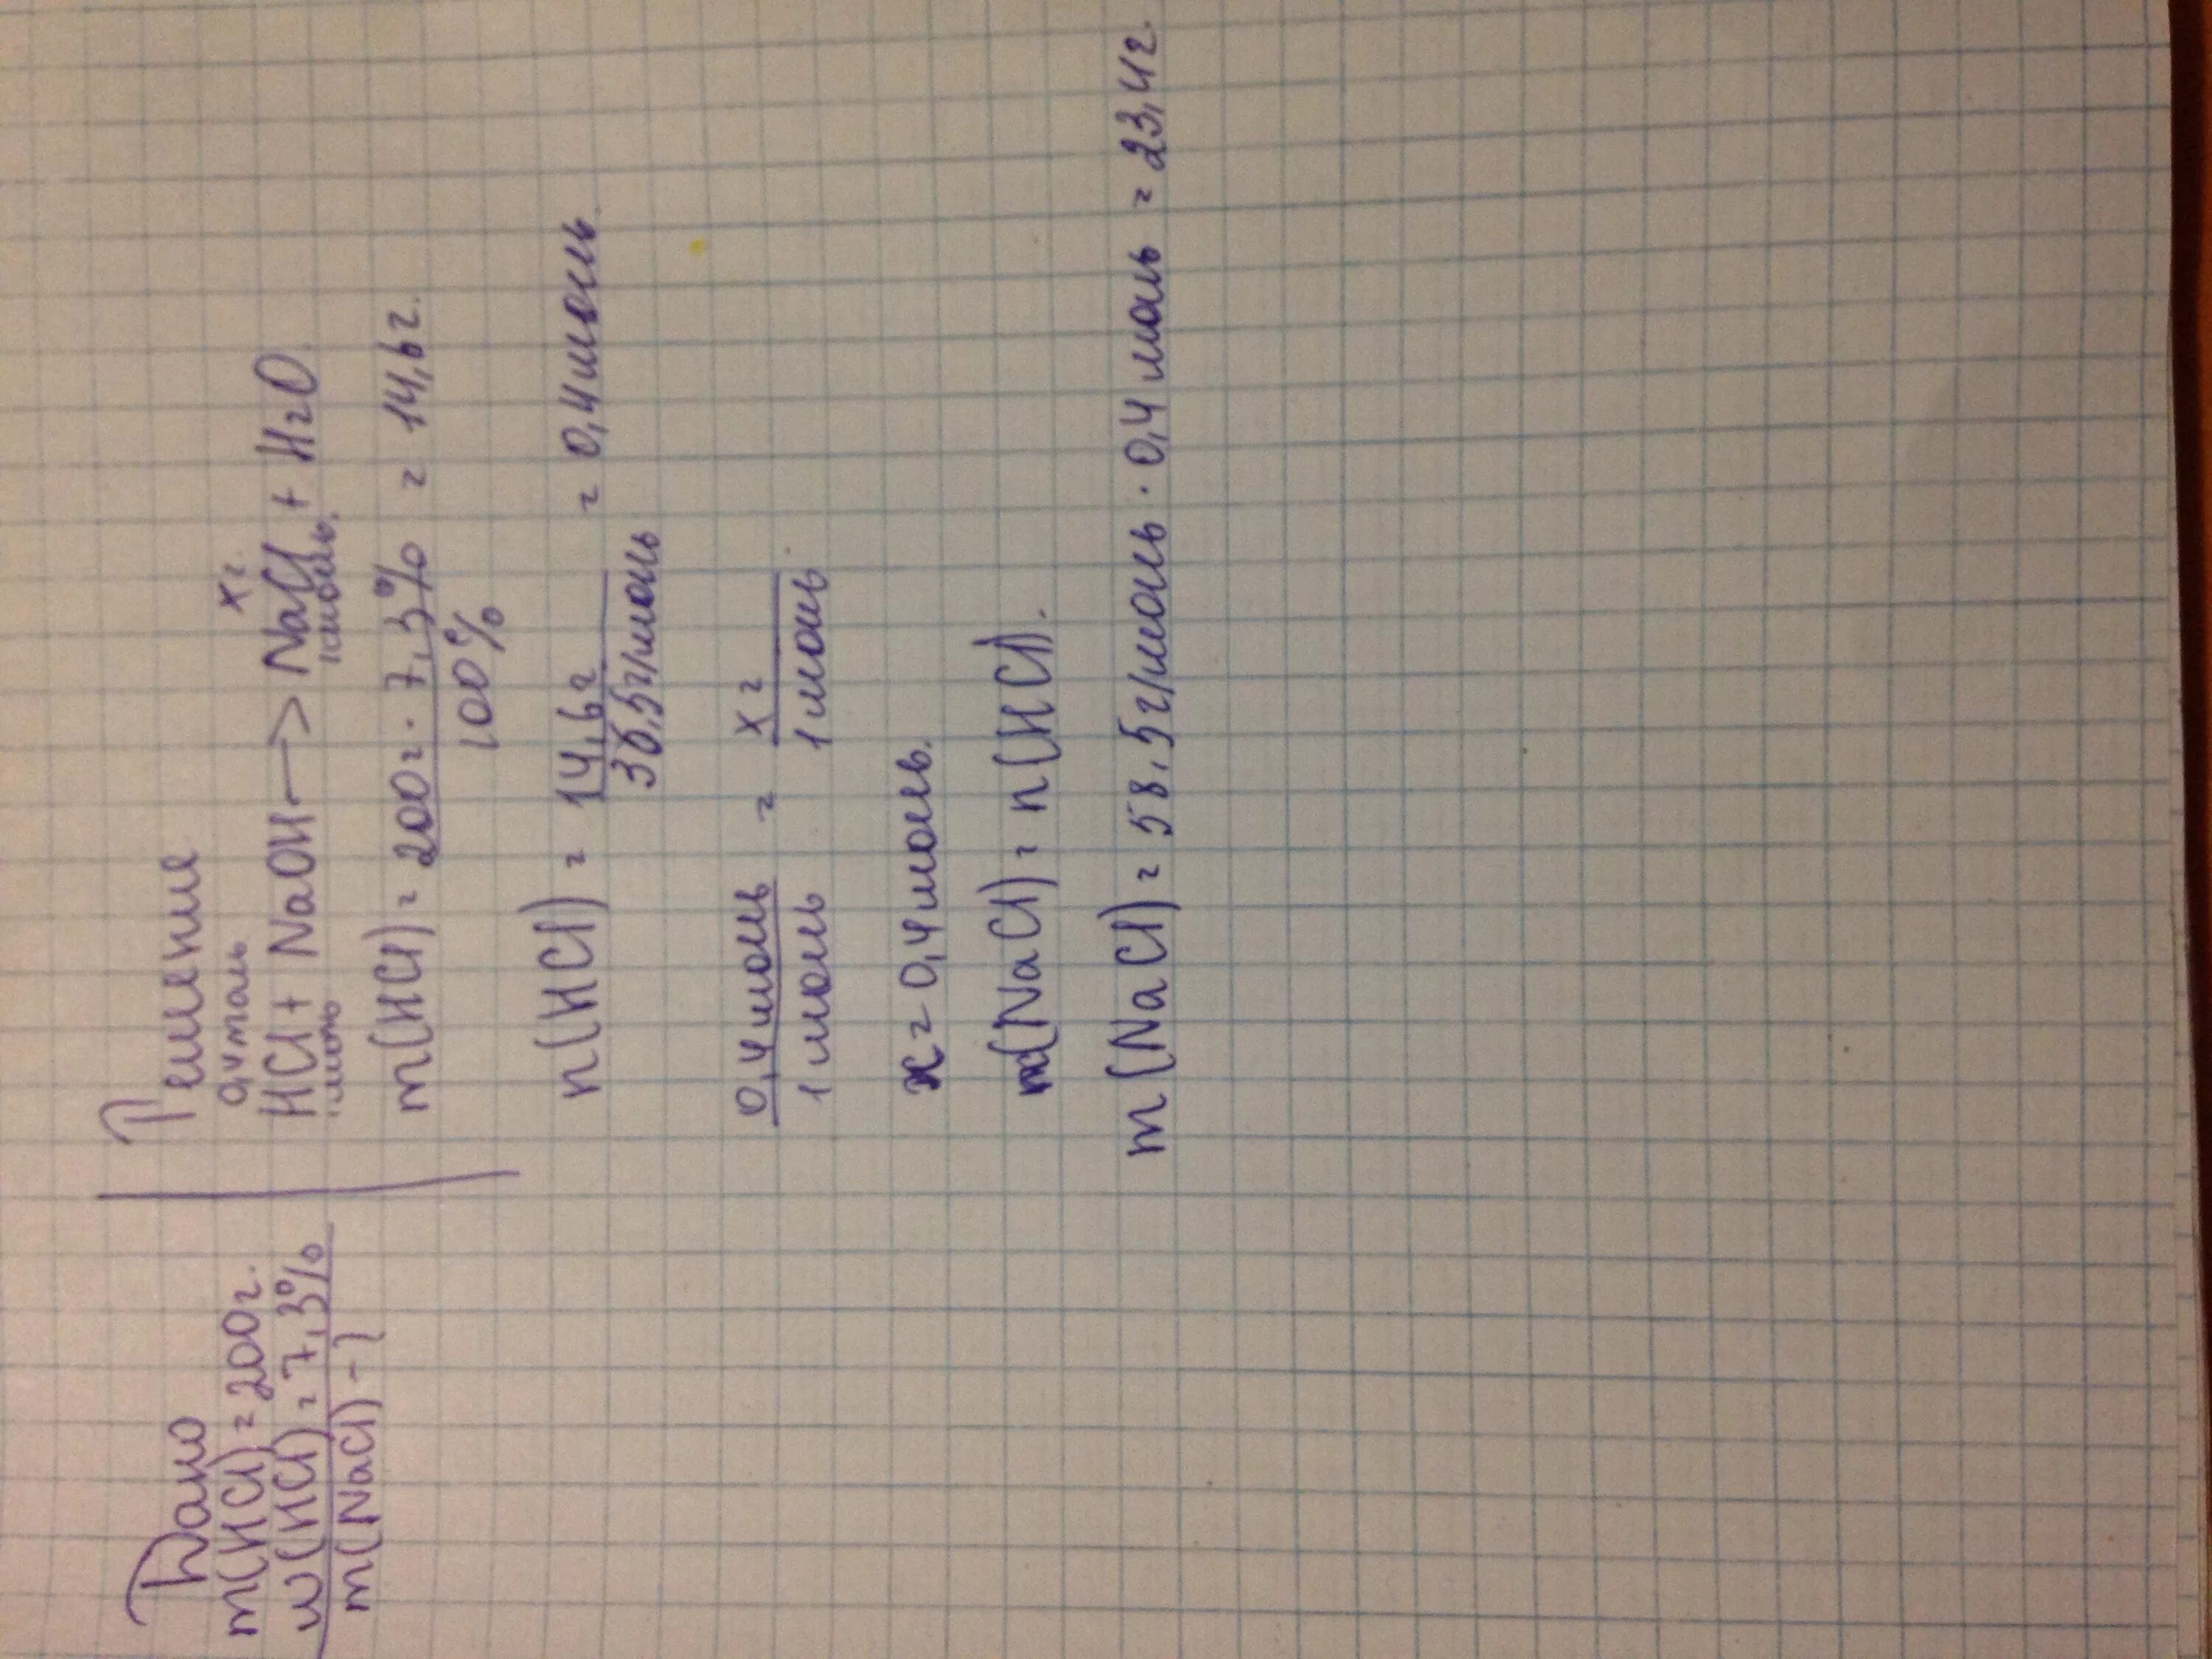 Дано
m(HCl) = 200г.
w(HCl) = 7,3%
m(NaCl) - ?
Решение
0,4 моль x г.
HCl + NaOH → NaCl + H2O.
1 моль 1 моль.
m(HCl) = 200г · 7,3% = 14,6г.
100%
n(HCl) = 14,6г = 0,4 моль.
36,5г/моль
0,4 моль = x г
1 моль 1 моль
x = 0,4 моль.
n(NaCl) = n(HCl).
m(NaCl) = 58,5г/моль · 0,4 моль = 23,4г.